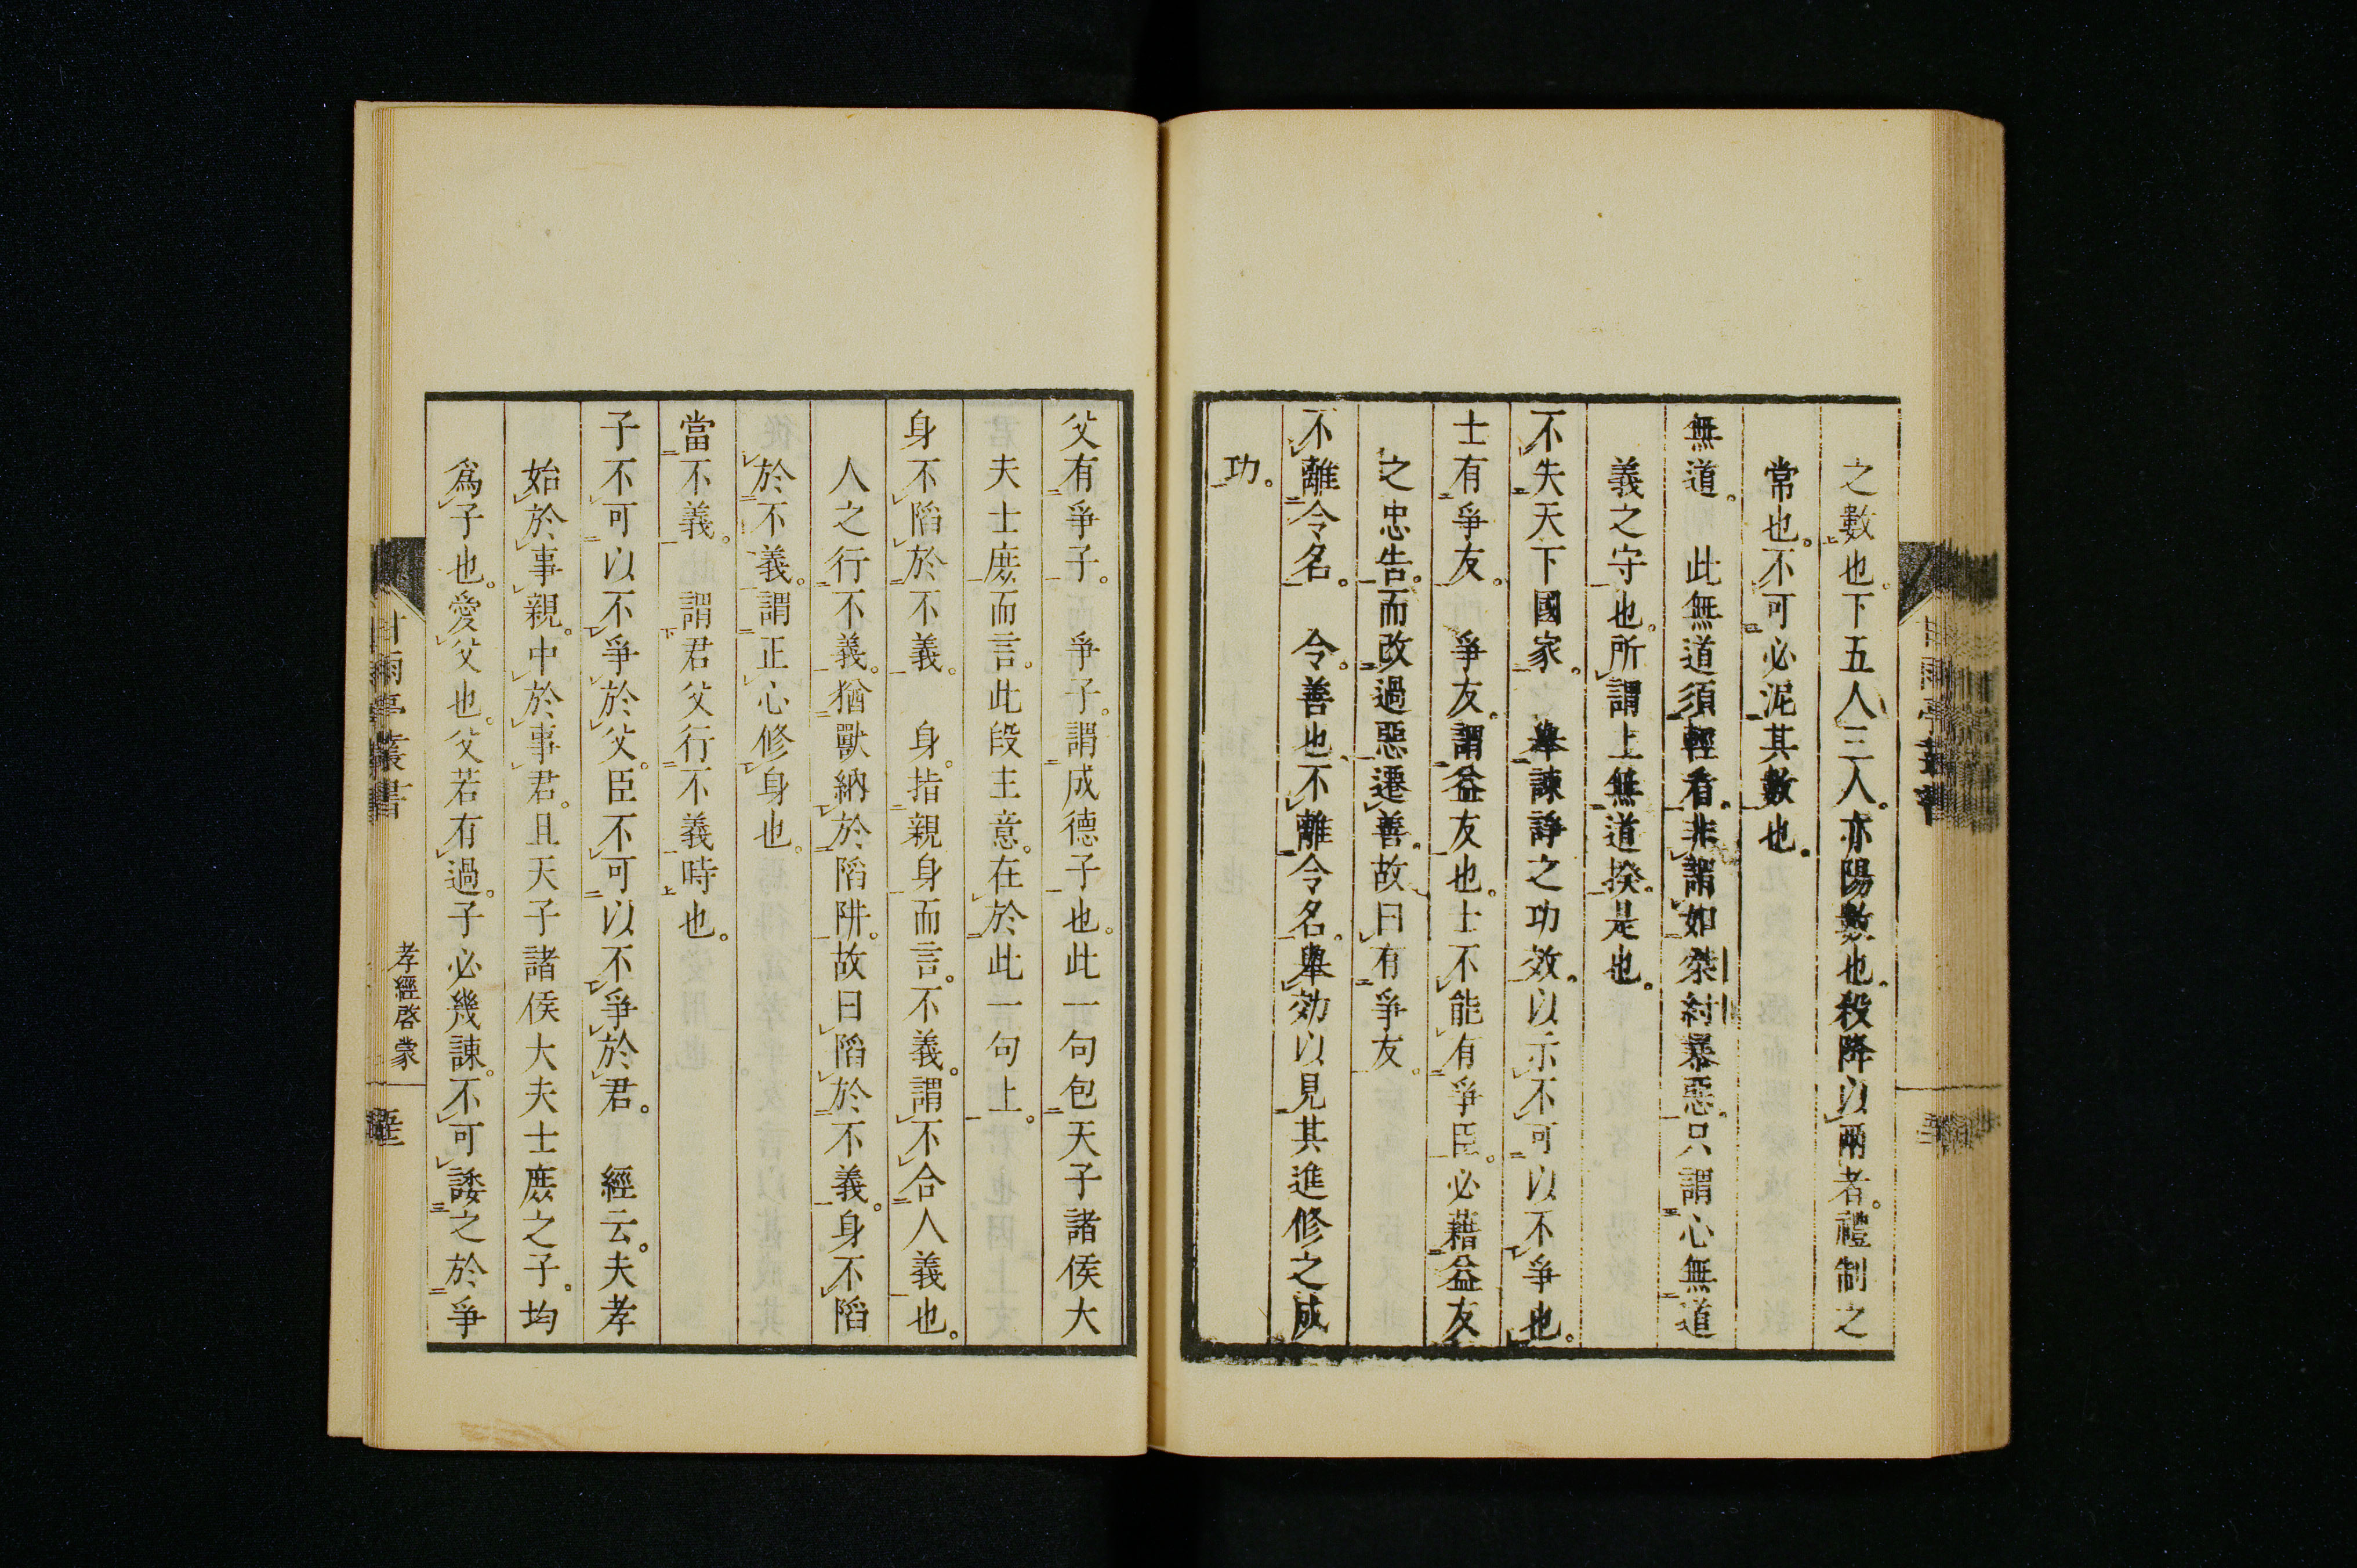 之數也。下五人三人。亦陽數也。殺降以兩者。禮制之
常也。不可必泥其數也。
無道。　此無道須輕看。非謂如桀紂暴惡。只謂心無道
義之守也。所謂上無道揆。是也。
不失天下國家。　舉諫諍之功效。以示不可以不爭也。
士有爭友。　爭友。謂益友也。士不能有爭臣。必藉益友
之忠告。而改過惡遷善。故曰有爭友。
不離令名。　令。善也、不離令名。舉効以見其進修之成
功。
父有爭子。　爭子。謂成德子也。此一句包天子諸侯大
夫士庶而言。此段主意。在於此一句上。
身不陷於不義。　身。指親身而言。不義。謂不合人義也。
人之行不義。猶獸納於陷阱。故曰陷於不義。身不陷
於不義。謂正心修身也。
當不義。　謂君父行不義時也。
子不可以不爭於父。臣不可以不爭於君。　經云。夫孝
始於事親。中於事君。且天子諸侯大夫士庶之子。均
爲子也。愛父也。父若有過。子必幾諫。不可諉之於爭
甘雨亭叢書
孝經啓蒙